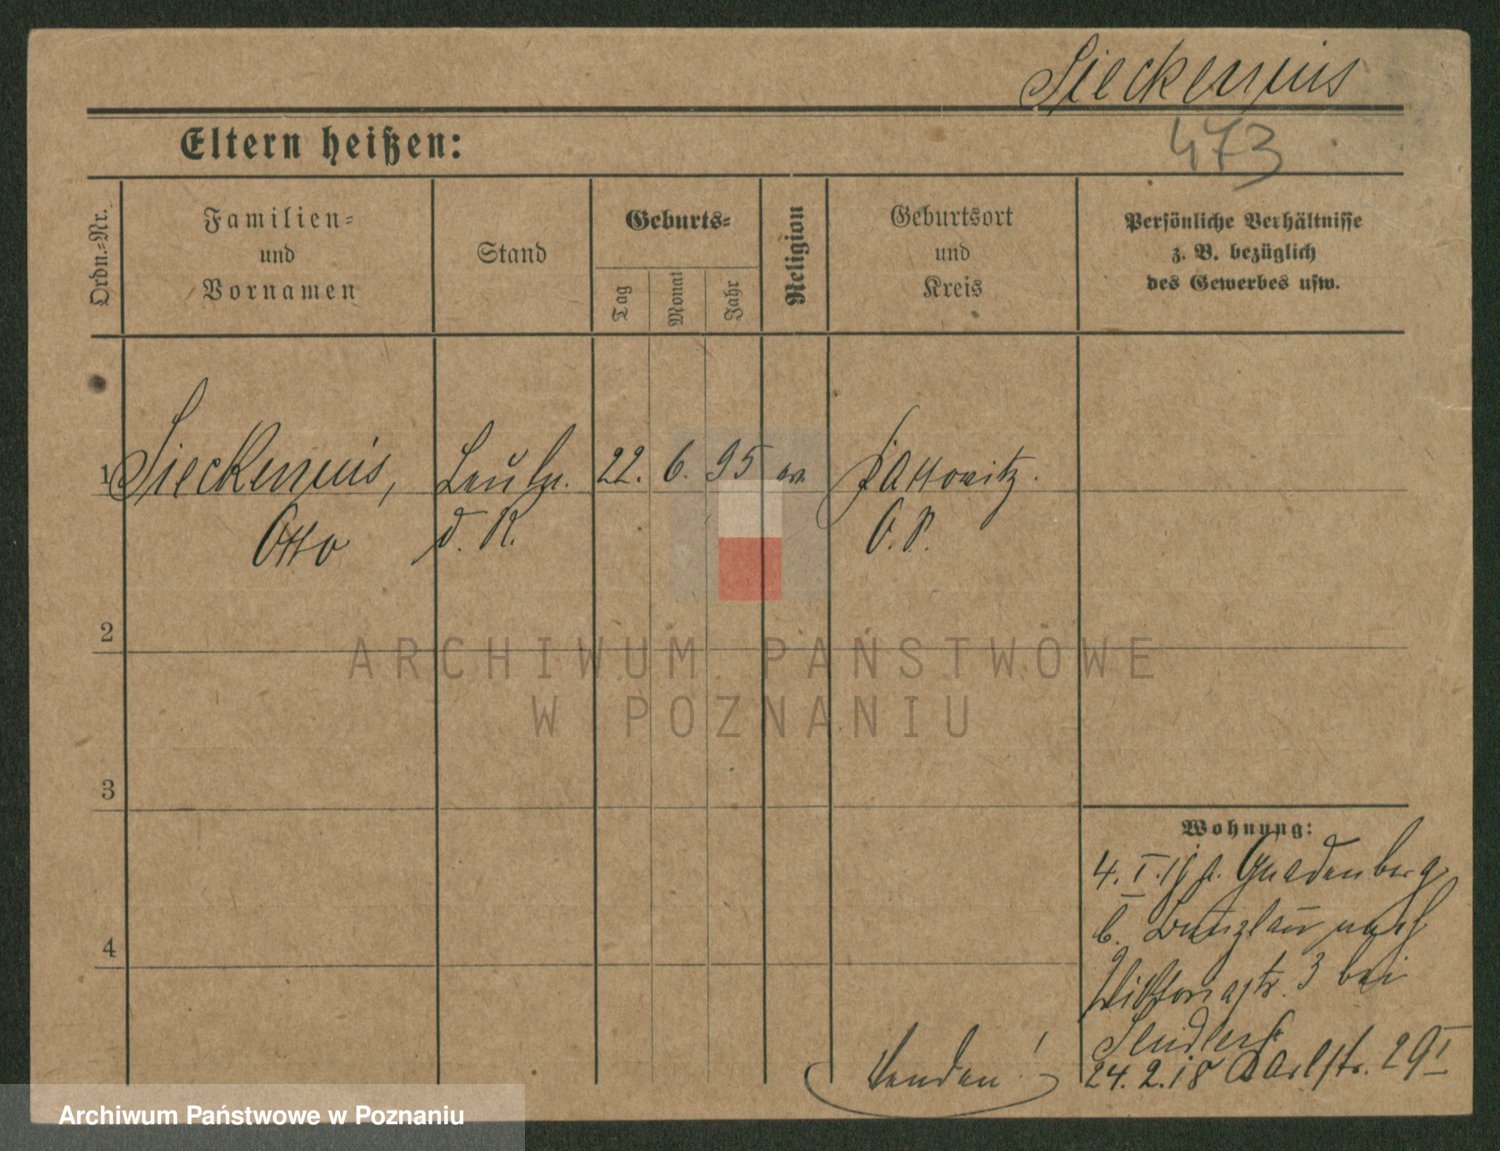 Sieckenius
473
Eltern heißen:
Ordn.-Nr.
Familien-
und
Vornamen
Stand
Geburts-
Tag
Monat
Jahr
Religion
Geburtsort
und
Kreis
Persönliche Verhältnisse
z. B. bezüglich
des Gewerbes usw.
1
Sieckenius,
Otto
Leutn.
d. R.
22.
6.
95
ev.
O. P.
2
3
4
Wohnung:
4. I. Gnadenberg
b. Bunzlau nach
Viktoriastr. 3 bei
24. 2. 18 Carlstr. 29 I
ARCHIWUM PAŃSTWOWE
W POZNANIU
Archiwum Państwowe w Poznaniu